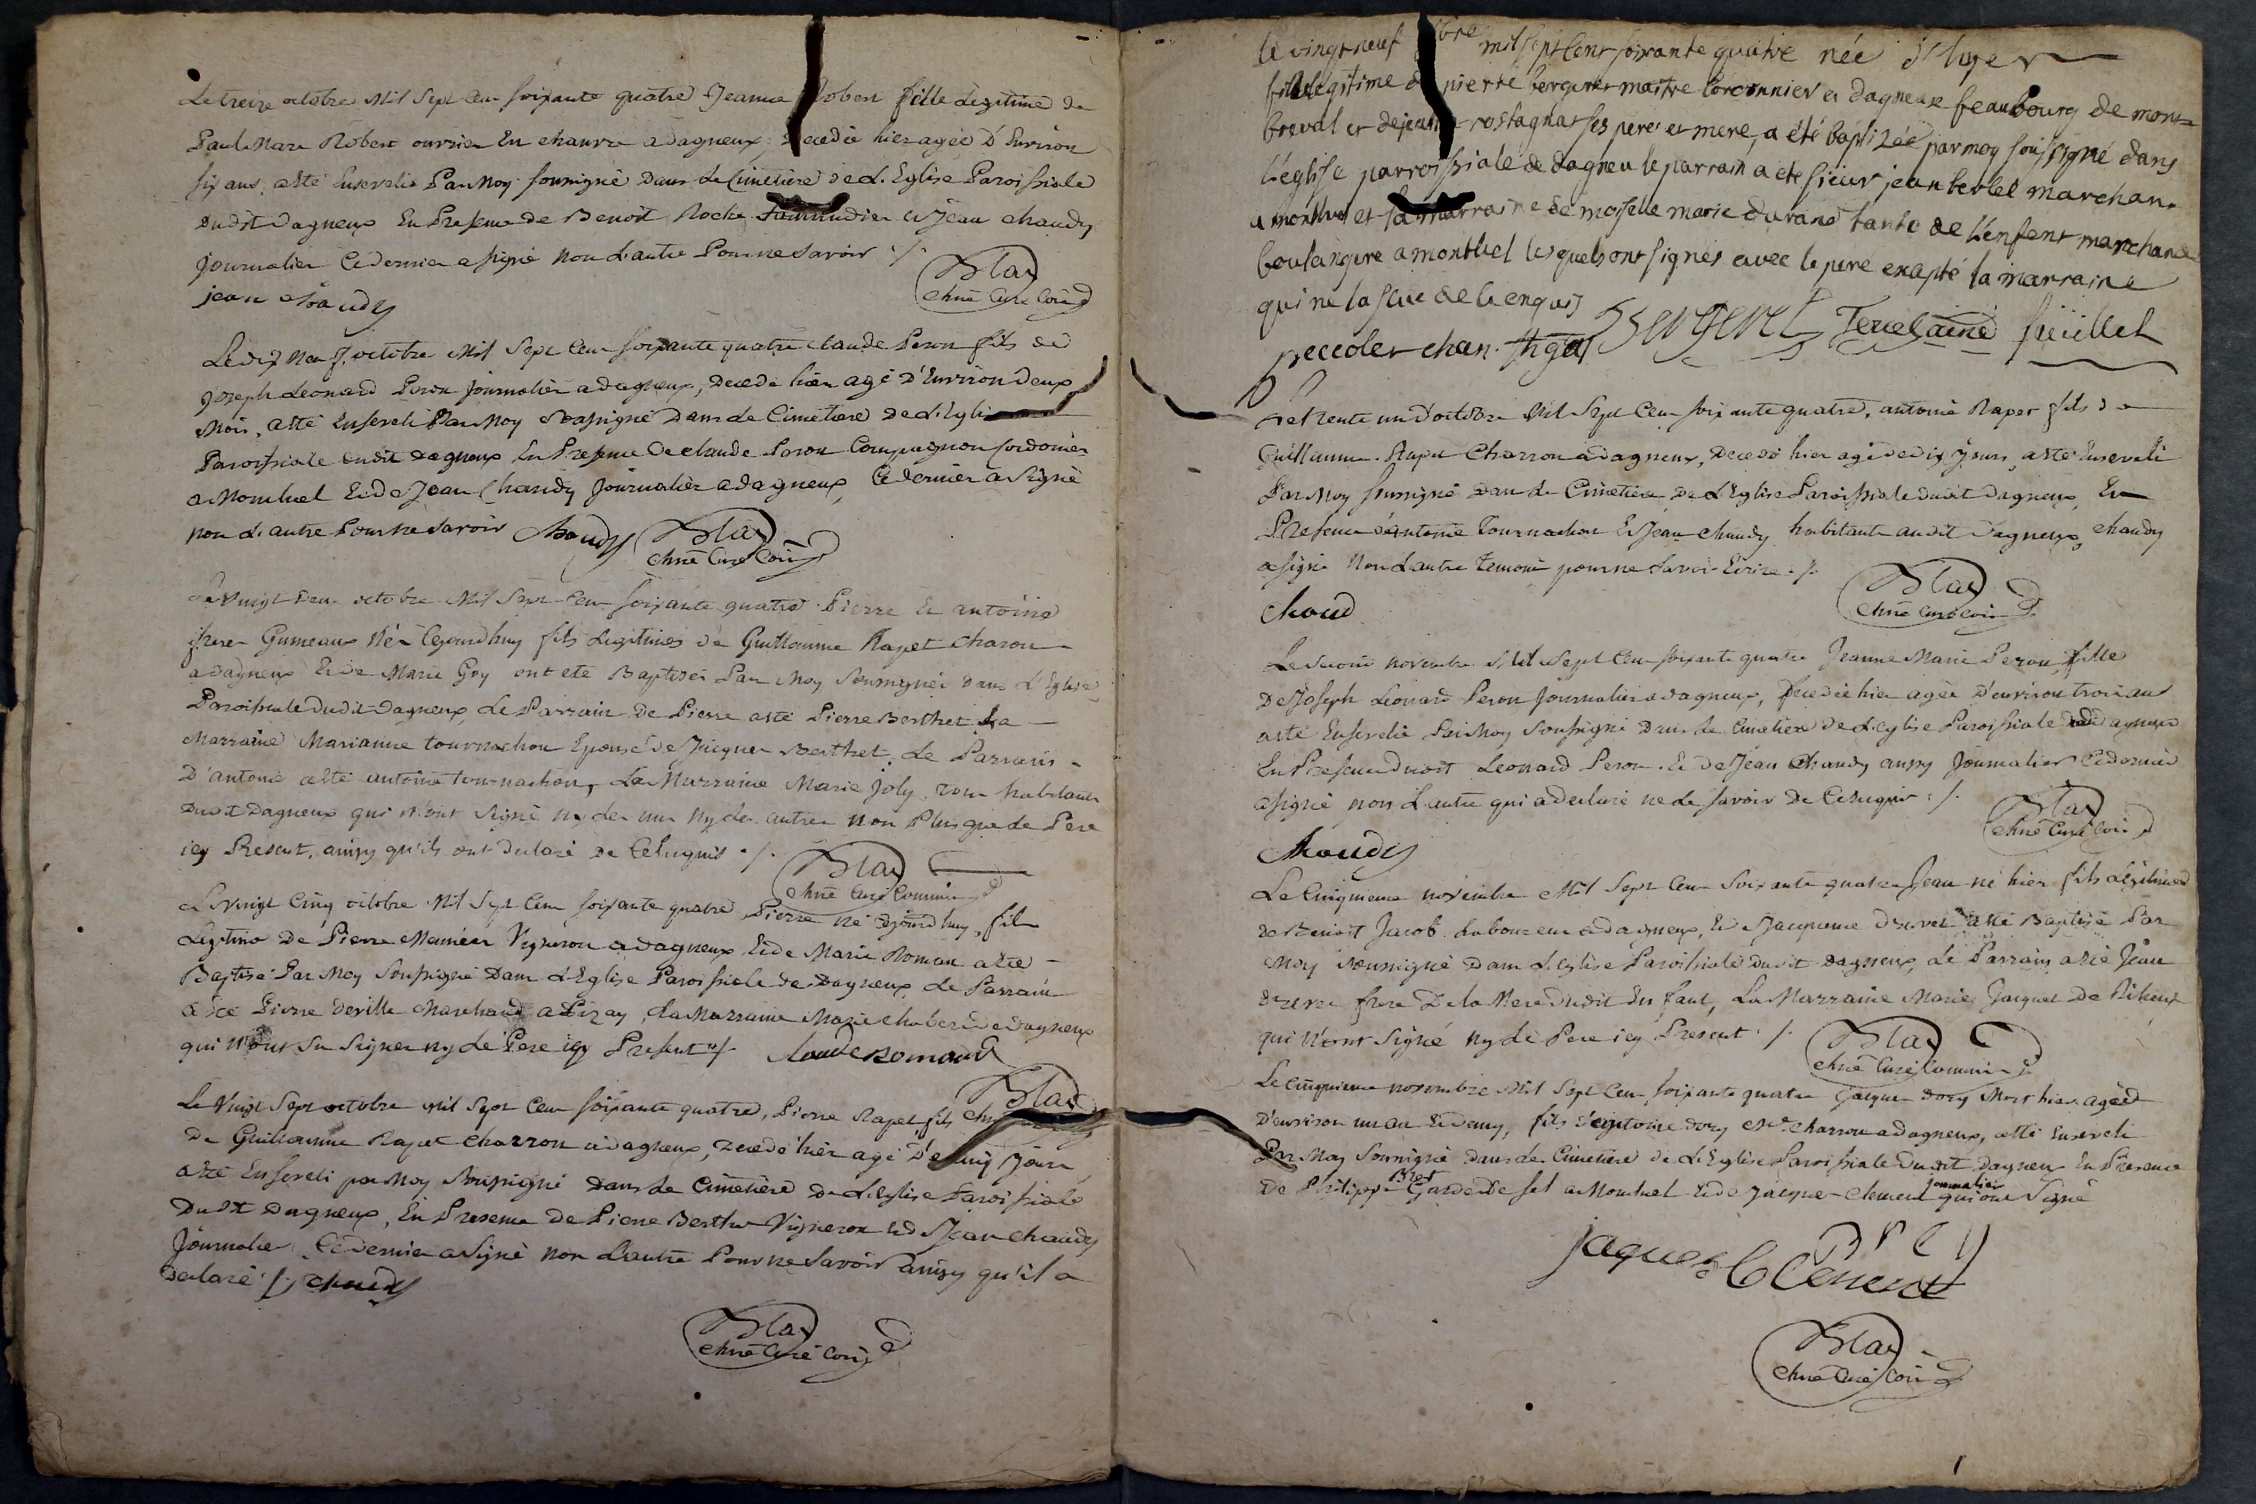 Le treize octobre Mil Sept Cent soixante quatre Jeanne Robert fille Legitime de
Paul Marc Robert ouvrier En chanvre a dagneux, Decedée hier agée D'Environ
six ans, a été Ensevelie Par Moy soussigné Dans Le Cimetiere de L'Eglise Paroissiale
Dudit Dagneux En Presence de Benoit Roche et Jean chaudy
journalier Ce dernier a signé Non L'autre Pour ne savoir ./.
jean chaudy
Blax
chne Curé Com
Le dix neuf octobre Mil Sept Cent soixante quatre claude Peron fils de
Joseph Leonard Peron journalier a dagneux, Decedé hier agé D'Environ Deux
Mois, a été Enseveli Par Moy soussigné Dans Le Cimetiere De L'Eglise
Paroissiale dudit dagneux En Presence De claude Peron Compagnon Cordonier
a Montluel Et de Jean Chaudy journalier a dagneux, Ce dernier a signé
non L'autre Pour ne savoir chaudy Blax
chne Curé Com
Le Vingt Deux octobre Mil Sept Cent soixante quatre Pierre Et antoine
freres Gumeaux Nés Cejourdhuy fils Legitimes de Guillaume Rapet charon
a dagneux Et de Marie Goy ont été Baptisés Par Moy Soussigné dans L'Eglise
Paroissiale Dudit Dagneux, Le Parrain De Pierre a été Pierre Berthet La
Marraine Marianne tournachon Epouse de Jacques Berthet, Le Parrain
D'antoine a été antoine tournachon, La Marraine Marie Joly tous habitants
Dudit Dagneux qui n'ont signé ny les uns ny les autres Non Plus que Le Pere
icy Present, ainsy qu'ils ont declaré De Ce Enquis ./.
Blax
chne Curé Commis
Le vingt Cinq octobre Mil Sept Cent soixante quatre Pierre né Cejourdhuy, fils
Legitime De Pierre Meunier Vigneron a dagneux Et de Marie Roman a été
Baptisé Par Moy Soussigné Dans L'Eglise Paroissiale De Dagneux, Le Parrain
a été Pierre Deville Marchand a Pizay, La Marraine Marie chabert de dagneux
qui N'ont su signer ny Le Pere icy Present ./. claude Romand
Blax
Le Vingt Sept octobre Mil Sept Cent soixante quatre, Pierre Rapet fils
De Guillaume Rapet charron a dagneux, decedé hier agé De Cinq Jours
a été Enseveli par Moy Soussigné Dans Le Cimetière De L'Eglise Paroissiale
Dudit Dagneux, En Presence De Pierre Berthet Vigneron Et de Jean chaudy
Journalier Ce dernier a signé non L'autre Pour ne savoir ainsy qu'il a
declaré ./. chaudy
Blax
chne Curé Com
Le vingt neuf 8bre mil sept cent soixante quatre née d'hyer
fille legitime de pierre bergeret maitre cordonnier a dagneux feaubourg de mont
breval et de jeanne rostagnat ses pere et mere, a été baptizée par moy soussigné dans
L'église parroissiale de dagneu le parrain a ete sieur jean marchand
a montluel et la marraine demoiselle marie durand tante de L'enfent marchande
boulangere a montluel lesquels ont signés avec le pere exapté la marraine
qui ne la sçue de ce enquis
peccolet chan. Bergeret Feuillet
Le trente un d'octobre Mil Sept Cent soixante quatre, antoine Rapet fils de
Guillaume Rapet Charron a dagneux, Decedé hier agé de dix Jours, a été Enseveli
Par Moy soussigné Dans Le Cimetiere De L'Eglise Paroissiale dudit Dagneux, En
Presence d'antoine Tournachon Et Jean chaudy habitants audit Dagneux, chaudy
a signé Non L'autre Temoin pour ne savoir Ecrire ./.
chaud
Blax
chne Curé Com
Le second novembre Mil Sept Cent soixante quatre Jeanne Marie Peron, fille
De Joseph Leonard Peron Journalier a dagneux, Decedée hier agée D'environ trois ans
a été Ensevelie Par Moy Soussigné Dans Le Cimetiere De L'Eglise Paroissiale Dudit dagneux
En Presence Dudit Leonard Peron Et De Jean Chaudy aussy Journalier Ce dernier
a signé non L'autre qui a declaré ne Le savoir De Ce Enquis ./.
Chaudy
Blax
chne Curé Com
Le Cinquieme novembre Mil Sept Cent Soixante quatre Jean né hier fils Légitime
De Benoit Jacob Laboureur a dagneux, Et Jacqueme Dervet a été Baptisé Par
Moy Soussigné Dans L'Eglise Paroissiale Dudit Dagneux, Le Parrain a été Jean
frere De la Mere Dudit Enfant, La Marraine Marie Jacquet
qui N'ont Signé ny Le Pere icy Present ./.
Blax
chne Curé Commis
Le Cinquieme novembre Mil Sept Cent soixante quatre Jacques Dory Mort hier agé
D'environ un an Et Demy, fils D'antoine Dory Me charron a dagneux, a été Enseveli
Par Moy Soussigné Dans Le Cimetiere De L'Eglise Paroissiale Dudit Dagneux En Presence
De Philippe Bret Garde De sel a Montluel Et de Jacques Clement journalier qui ont Signé
Bret
jaques Clement
Blax
chne Curé Com